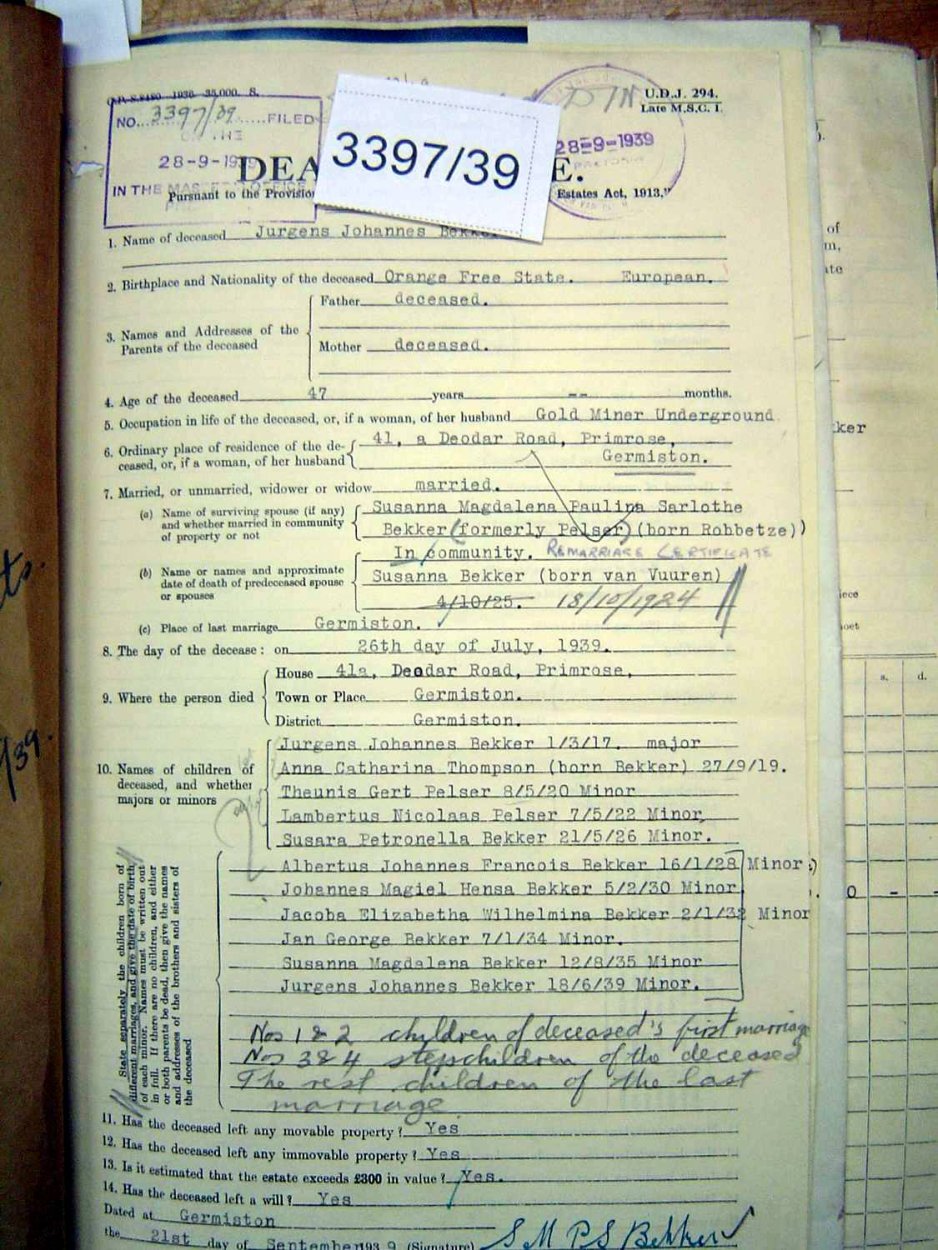 O.P.-S.8480—1936—35,000. S.
U.D.J. 294.
Late M.S.C. I.
NO. 3397/39 FILED
28-9-1939
IN THE MASTER'S OFFICE
28-9-1939
3397/39
DEA E.
Pursuant to the Provision Estates Act, 1913."
1. Name of deceased Jurgens Johannes Bekker
2. Birthplace and Nationality of the deceased Orange Free State. European.
3. Names and Addresses of the Parents of the deceased
Father deceased.
Mother deceased.
4. Age of the deceased 47 years -- months.
5. Occupation in life of the deceased, or, if a woman, of her husband Gold Miner Underground
6. Ordinary place of residence of the de-
ceased, or, if a woman, of her husband
41, a Deodar Road, Primrose,
Germiston.
7. Married, or unmarried, widower or widow married.
(a) Name of surviving spouse (if any)
and whether married in community
of property or not
Susanna Magdalena Paulina Sarlothe
Bekker (formerly Pelser) (born Rohbetze))
In community. REMARRIAGE CERTIFICATE
(b) Name or names and approximate
date of death of predeceased spouse
or spouses
Susanna Bekker (born van Vuuren)
4/10/25. 18/10/1924
(c) Place of last marriage Germiston.
8. The day of the decease: on 26th day of July, 1939.
9. Where the person died
House 41a, Deodar Road, Primrose,
Town or Place Germiston.
District Germiston.
10. Names of children of
deceased, and whether
majors or minors
Jurgens Johannes Bekker 1/3/17. major
Anna Catharina Thompson (born Bekker) 27/9/19.
Theunis Gert Pelser 8/5/20 Minor
Lambertus Nicolaas Pelser 7/5/22 Minor
Susara Petronella Bekker 21/5/26 Minor.
State separately the children born of
different marriages, and give the date of birth
of each minor. Names must be written out
in full. If there are no children, and either
or both parents be dead, then give the names
and addresses of the brothers and sisters of
the deceased
Albertus Johannes Francois Bekker 16/1/28 Minor.)
Johannes Magiel Hensa Bekker 5/2/30 Minor
Jacoba Elizabetha Wilhelmina Bekker 2/1/32 Minor
Jan George Bekker 7/1/34 Minor.
Susanna Magdalena Bekker 12/8/35 Minor
Jurgens Johannes Bekker 18/6/39 Minor.
Nos 1 & 2 children of deceased's first marriage
Nos 3 & 4 stepchildren of the deceased
The rest children of the last
marriage
11. Has the deceased left any movable property? Yes
12. Has the deceased left any immovable property? Yes
13. Is it estimated that the estate exceeds £300 in value? Yes.
14. Has the deceased left a will? Yes
Dated at Germiston
the 21st day of September 1939 (Signature) S M P S Bekker
of
ker
s. d.
0 - -
/39.